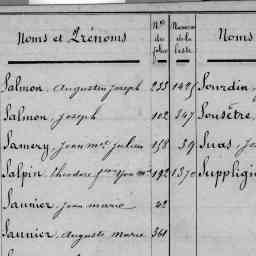 Noms et Prénoms N.os du folio Numéros de la liste Noms
Salmon, Augustin Joseph 255 1425 Sourdin,
Salmon, Joseph 102 347 Sousêtre,
Samery, Jean m.ie Julien 158 39 Suas, Jo
Salpin, théodore 192 1370 Suppligi
Saunier, Jean marie 42
Saunier, Auguste marie 361